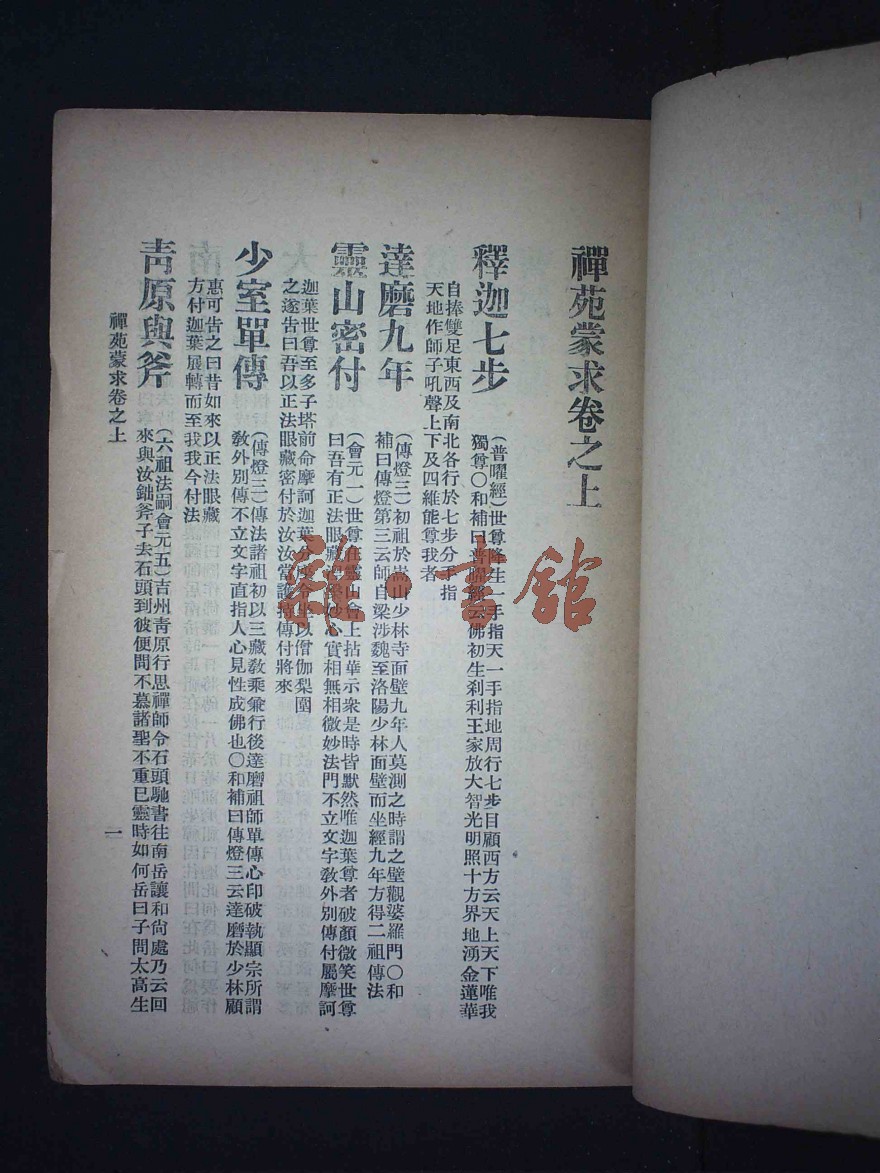 禪苑蒙求卷之上
釋迦七步
(普曜經)世尊降生一手指天一手指地周行七步目顧西方云天上天下唯我
獨尊〇和補曰普曜經云佛初生刹利王家放大智光明照十方界地湧金蓮華
自捧雙足東西及南北各行於七步分手指
天地作師子吼聲上下及四維能尊我者
達磨九年
(傳燈三)初祖於嵩山少林寺面壁九年人莫測之時謂之壁觀婆羅門〇和
補曰傳燈第三云師自梁涉魏至洛陽少林面壁而坐經九年方得二祖傳法
靈山密付
(會元一)世尊在靈山會上拈華示衆是時皆默然唯迦葉尊者破顏微笑世尊
曰吾有正法眼藏涅槃妙心實相無相微妙法門不立文字敎外別傳付屬摩訶
迦葉世尊至多子塔前命摩訶迦葉分座令坐以僧伽梨圍
之遂告曰吾以正法眼藏密付於汝汝當護持傳付將來
少室單傳
(傳燈三)傳法諸祖初以三藏敎乘兼行後達磨祖師單傳心印破執顯宗所謂
敎外別傳不立文字直指人心見性成佛也〇和補曰傳燈三云達磨於少林顧
惠可告之曰昔如來以正法眼藏
方付迦葉展轉而至我我今付法
靑原與斧
(六祖法嗣會元五)吉州靑原行思禪師令石頭馳書往南岳讓和尙處乃云回
來與汝鈯斧子去石頭到彼便問不慕諸聖不重已靈時如何岳曰子問太高生
禪苑蒙求卷之上
一
雜·書館